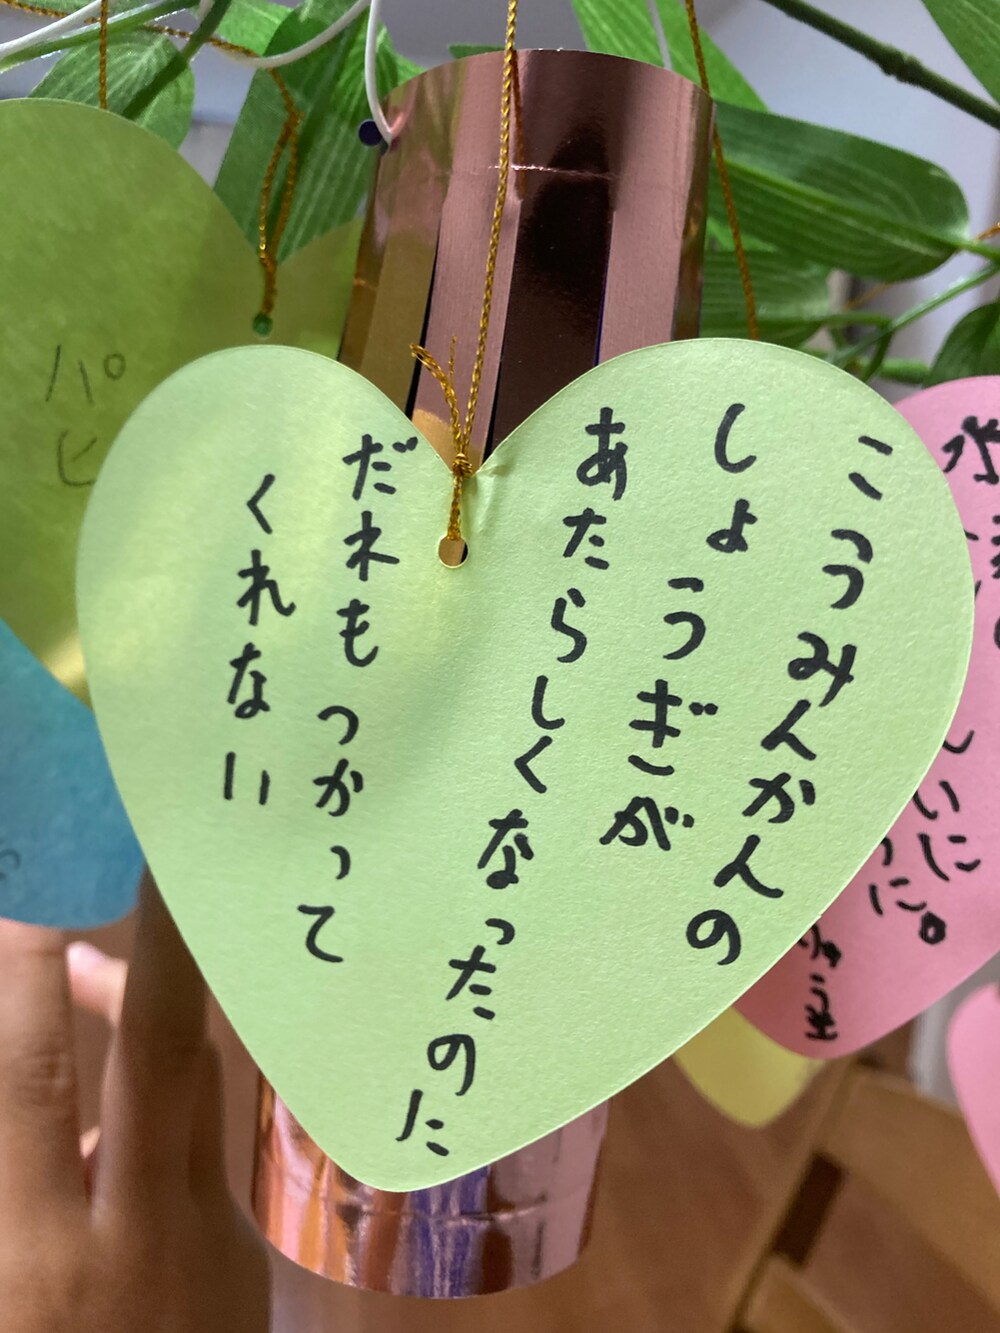 水
いに
に。
こうみんかんの
しょうぎが
あたらしくなったのに
だれもつかって
くれない
パ